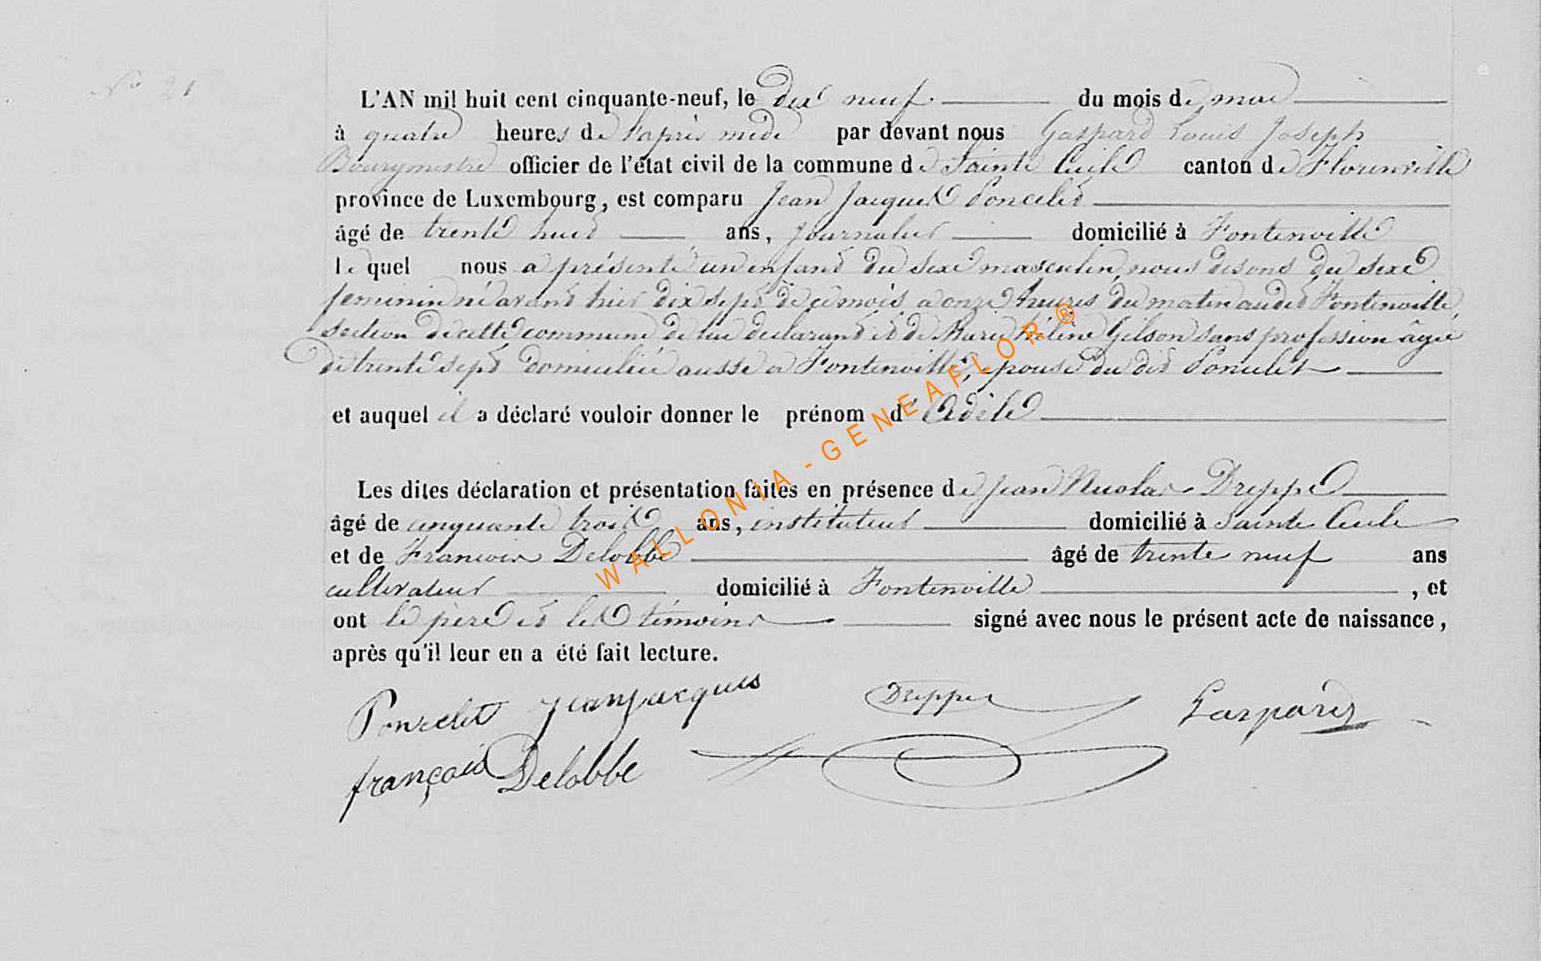 N° 21
L'AN mil huit cent cinquante-neuf, le dix neuf du mois de mai
à quatre heures de l'après midi par devant nous Gaspard Louis Joseph
Bourgmestre officier de l'état civil de la commune de Sainte Cécile canton de Florenville
province de Luxembourg, est comparu Jean Jacques Poncelet
âgé de trente huit ans, journalier domicilié à Fontenoille
le quel nous a présenté un enfant du sexe masculin, nous disons du sexe
feminin né avant hier dix sept de ce mois a onze heures du matin au dit Fontenoille,
section de cette commune de lui déclarant et de Marie Hélène Gilson sans profession âgée
de trente sept domiciliée aussi a Fontenoille, epouse du dit Poncelet
et auquel il a déclaré vouloir donner le prénom d'Adèle
Les dites déclaration et présentation faites en présence de Jean Nicolas Dreppe
âgé de cinquante trois ans, instituteur domicilié à Sainte Cécile
et de Francois Delobbe âgé de trente neuf ans
cultivateur domicilié à Fontenoille, et
ont le père et les témoins signé avec nous le présent acte de naissance,
après qu'il leur en a été fait lecture.
Poncelet jean jacques Dreppe Gaspard
françois Delobbe
WALLONIA - GENEAFLOR ®